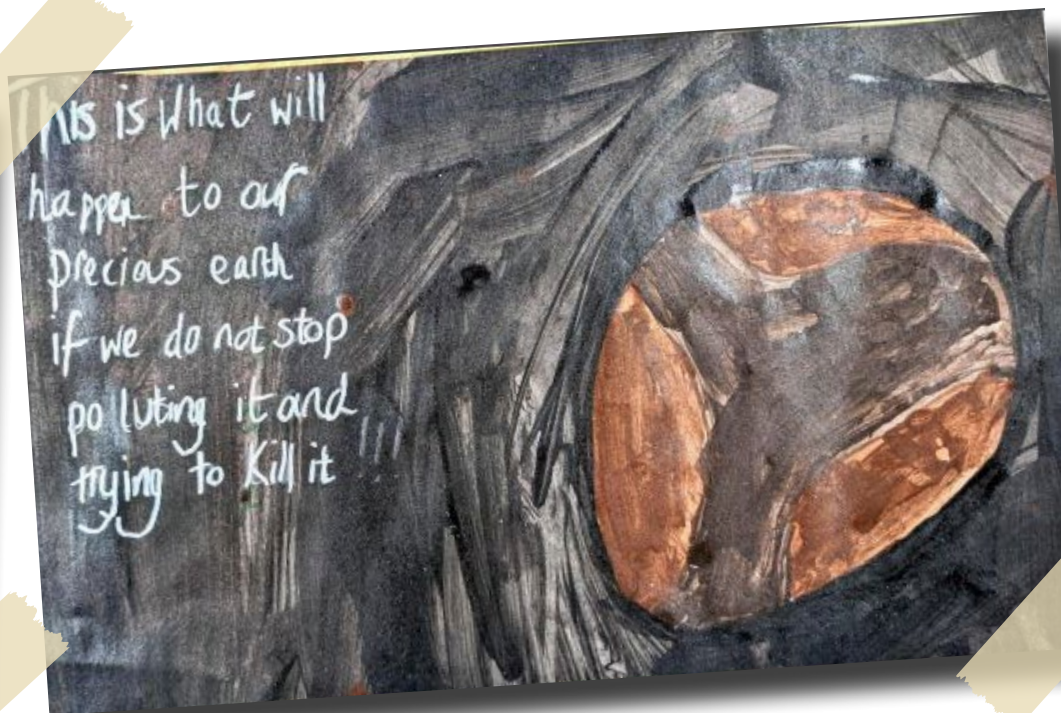 This is What will
happen to our
precious earth
if we do not stop
polluting it and
trying to Kill it !!!